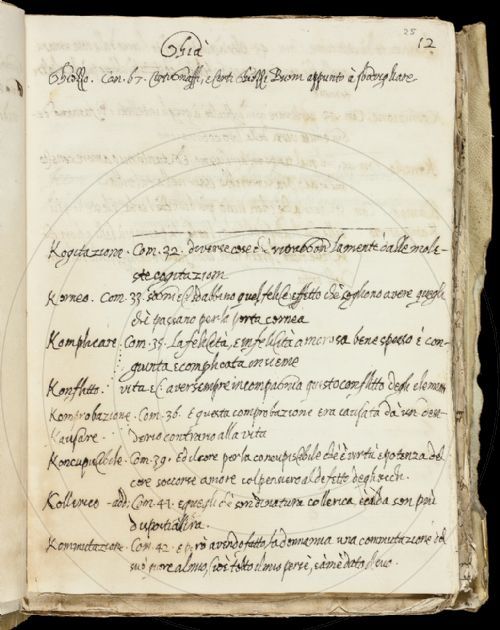 25
12
Ghia
Ghioffo. Com. 67. Certi ghioffi Buom appunto è
Kogitazione. Com. 22. diverse cose dalle mole-
ste cogitazioni
Korneo. Com. 33. quel felice effetto che sogliono avere quegli
che passano per la porta cornea
Komplicare. Com. 35. La felicità, e infelicità amorosa bene spesso è con-
giunta e complicata insieme
Konflitto. vita e aver sempre in compagnia questo conflitto degli elementi
Komprobazione. Com. 36. E questa comprobazione era causata da un desi-
Kausare. derio contrario alla vita
Koncupiscibile. Com. 39. Ed il core per la concupiscibile che è virtù e potenza del
core soccorse amore col pensiero al difetto degli occhi.
Kollerico - add. Com. 41. e quegli che son di natura collerica, e calda son più
disposti all'ira.
Kommutazione. Com. 42. e però avendo fatto la donna mia una commutazione del
suo core al mio, cioè tolto il mio per sé, e a me dato il suo.